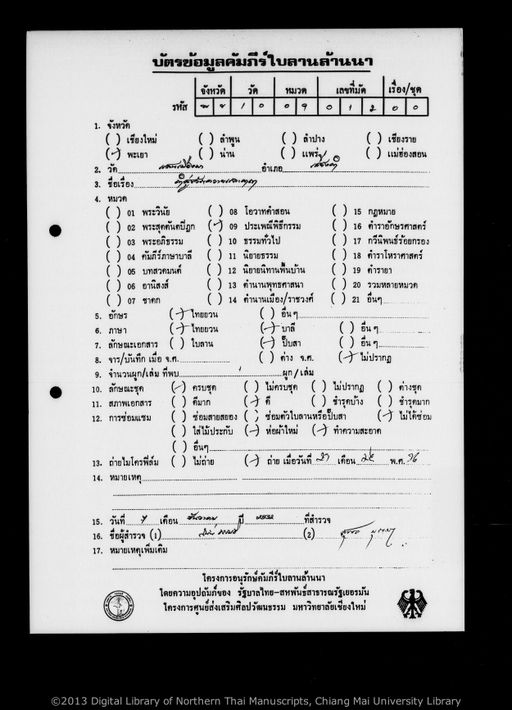 บัตรข้อมูลคัมภีร์ใบลานล้านนา
จังหวัด วัด หมวด เลขที่มัด เรื่อง/ชุด
รหัส 1 0 0 9 0 1 2 0 0
1. จังหวัด
( ) เชียงใหม่ ( ) ลำพูน ( ) ลำปาง ( ) เชียงราย
(-) พะเยา ( ) น่าน ( ) แพร่ ( ) แม่ฮ่องสอน
2. วัด อำเภอ
3. ชื่อเรื่อง
4. หมวด
( ) 01 พระวินัย ( ) 08 โอวาทคำสอน ( ) 15 กฎหมาย
( ) 02 พระสุตตันตปิฎก (-) 09 ประเพณีพิธีกรรม ( ) 16 ตำราอักษรศาสตร์
( ) 03 พระอภิธรรม ( ) 10 ธรรมทั่วไป ( ) 17 กวีนิพนธ์ร้อยกรอง
( ) 04 คัมภีร์ภาษาบาลี ( ) 11 นิยายธรรม ( ) 18 ตำราโหราศาสตร์
( ) 05 บทสวดมนต์ ( ) 12 นิยายนิทานพื้นบ้าน ( ) 19 ตำรายา
( ) 06 อานิสงส์ ( ) 13 ตำนานพุทธศาสนา ( ) 20 รวมหลายหมวด
( ) 07 ชาดก ( ) 14 ตำนานเมือง/ราชวงศ์ ( ) 21 อื่นๆ
5. อักษร (-) ไทยยวน ( ) อื่น ๆ
6. ภาษา (-) ไทยยวน (-) บาลี ( ) อื่น ๆ
7. ลักษณะเอกสาร ( ) ใบลาน (-) ปั๊บสา ( ) อื่น ๆ
8. จาร/บันทึก เมื่อ จ.ศ. ( ) ต่าง จ.ศ. (-) ไม่ปรากฏ
9. จำนวนผูก/เล่ม ที่พบ ผูก/เล่ม
10. ลักษณะชุด (-) ครบชุด ( ) ไม่ครบชุด ( ) ไม่ปรากฏ ( ) ต่างชุด
11. สภาพเอกสาร ( ) ดีมาก (-) ดี ( ) ชำรุดบ้าง ( ) ชำรุดมาก
12. การซ่อมแซม ( ) ซ่อมสายสยอง ( ) ซ่อมตัวใบลานหรือปั๊บสา (-) ไม่ได้ซ่อม
( ) ใส่ไม้ประกับ (-) ห่อผ้าใหม่ (-) ทำความสะอาด
( ) อื่นๆ
13. ถ่ายไมโครฟิล์ม ( ) ไม่ถ่าย (-) ถ่าย เมื่อวันที่ เดือน พ.ศ. 36
14. หมายเหตุ
15. วันที่ เดือน ธันวาคม ปี ที่สำรวจ
16. ชื่อผู้สำรวจ (1) (2)
17. หมายเหตุเพิ่มเติม
โครงการอนุรักษ์คัมภีร์ใบลานล้านนา
โดยความอุปถัมภ์ของ รัฐบาลไทย-สหพันธ์สาธารณรัฐเยอรมัน
โครงการศูนย์ส่งเสริมศิลปวัฒนธรรม มหาวิทยาลัยเชียงใหม่
©2013 Digital Library of Northern Thai Manuscripts, Chiang Mai University Library